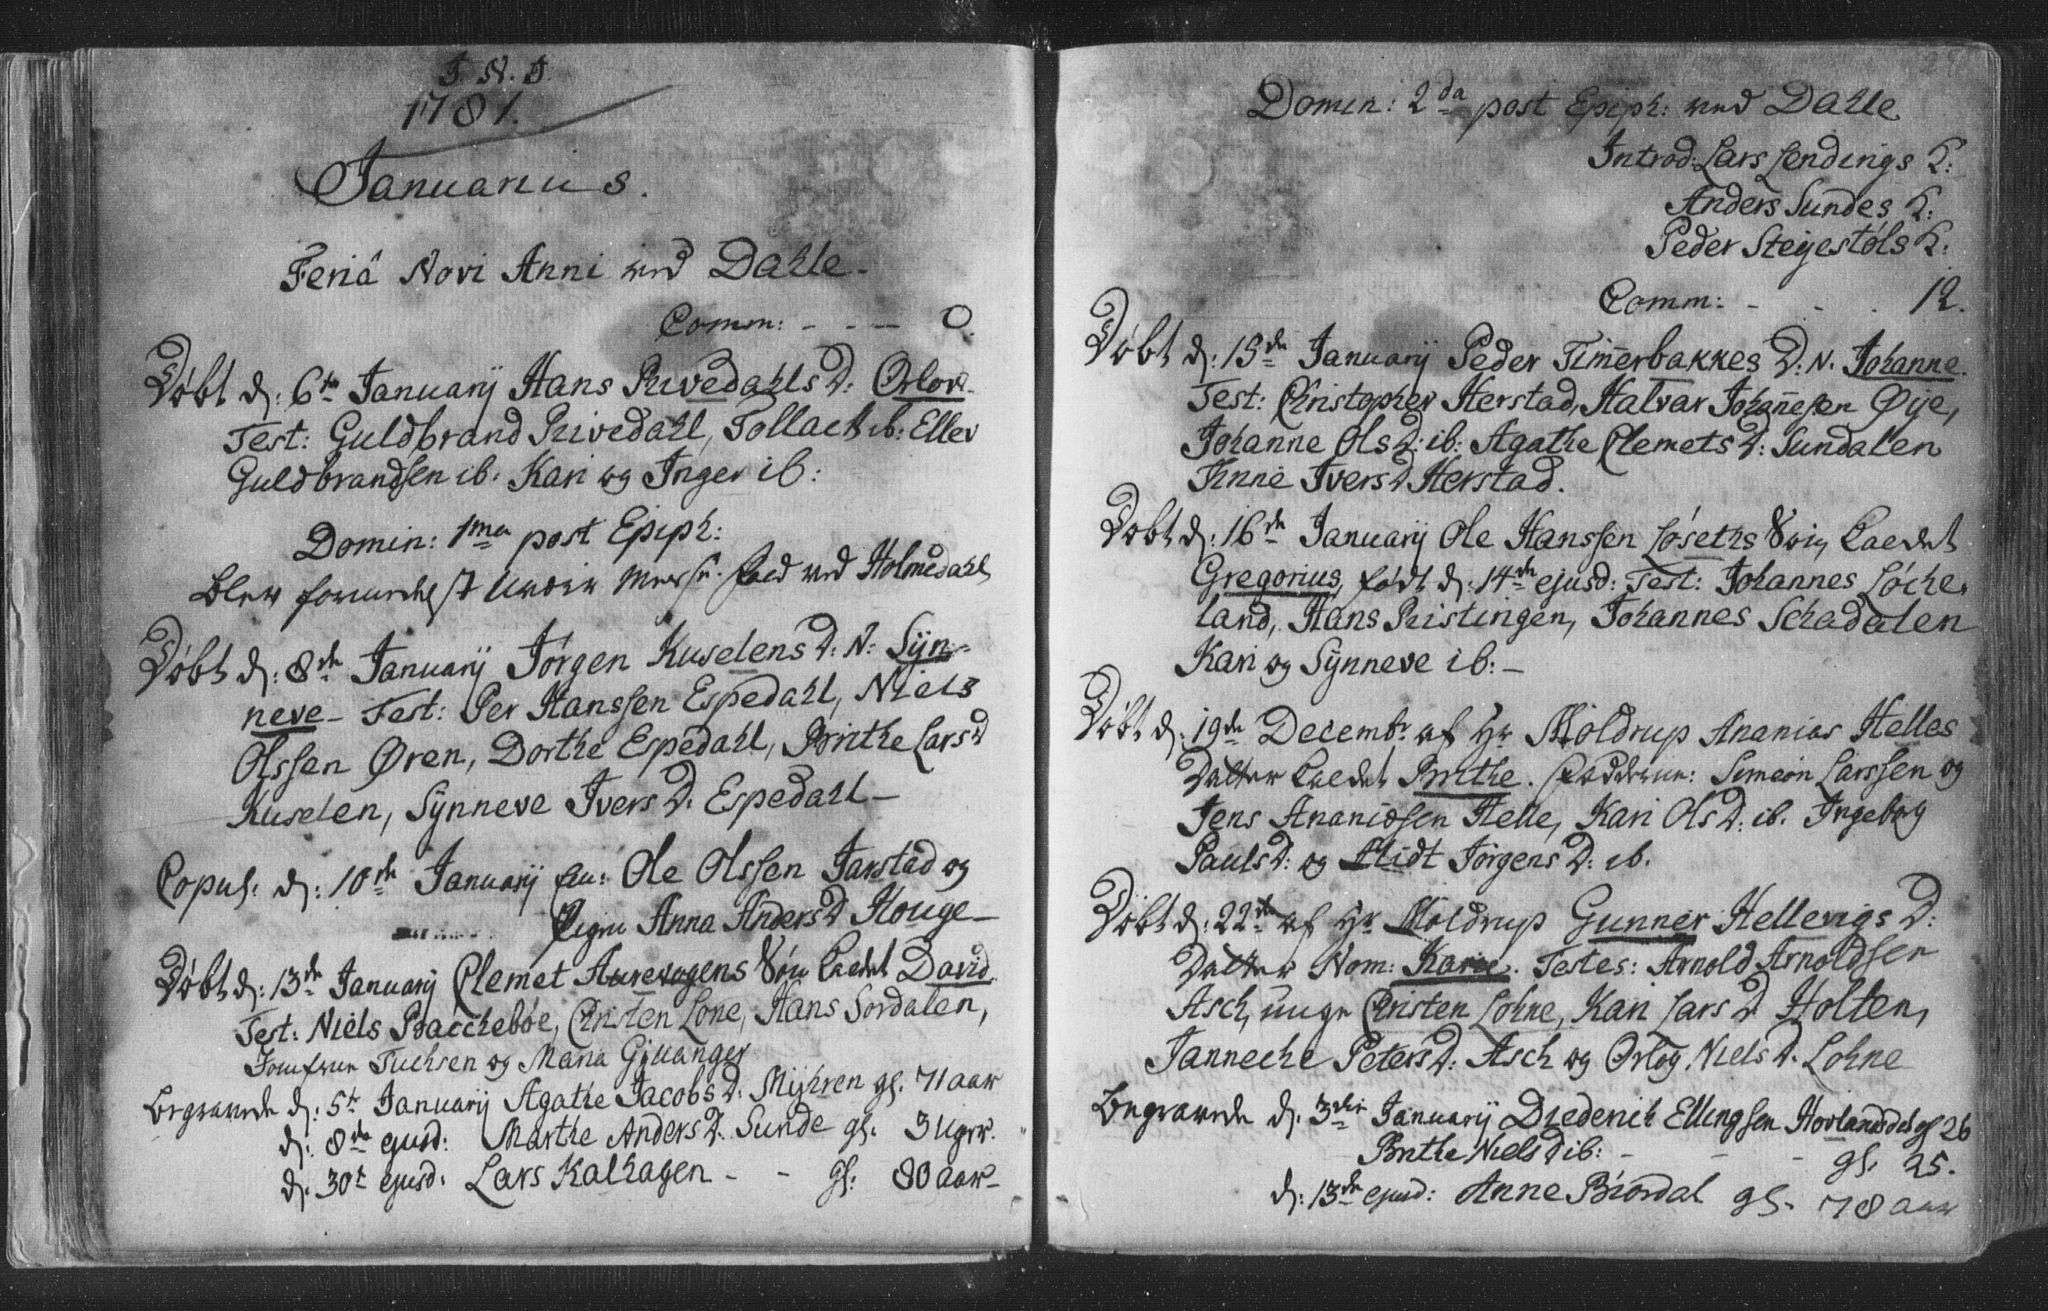 J. N. J.
1781.
Januarius.
Feriâ Novi Anni ved Dahle.
Comm: - - - 0.
Døbt d: 6te Januarij Hans Rivedahls D: Orlov.
Test: Guldbrand Rivedahl, Tollach ib: Ellev
Guldbrandsen ib. Kari og Inger ib:
Domin: 1ma post Epiph:
blev forrettet med Holmedahl
Døbt d: 8de Januarij Jørgen Kuselens D: N: Syn-
neve - Test: Per Hanssen Espedahl, Niels
Olssen Øren, Dorthe Espedahl, Brithe LarsD
Kuselen, Synneve IversD. Espedahl -
Copul: d: 10de Januarij Ole Olssen Jarstad og
Pigen Anna AndersD Houge -
Døbt d: 13de Januarij Clemet Aurevogens Søn kaldet David
Test: Niels Bacchebøe, Christen Lone, Hans Sørdalen,
Jomfrue Tuchsen og Maria Gjuanger
Begravede d: 5te Januarij Agathe JacobsD: Myhren gl. 71 aar
d: 8de ejusd: Marthe AndersD. Sunde gl. 3 Uger.
d: 30te ejusd: Lars Kalhagen - - gl: 80 aar -
Domin: 2da post Epiph: ved Dahle
Introd: Lars Lendings K:
Anders Sundes K:
Peder Steyestøls K:
Comm: - . . 12.
Døbt d: 15de Januarij Peder Timerbakkes D: N. Johanne.
Test: Christopher Herstad, Halvar Johanesen Øye,
Johanne OlsD: ib: Agathe ClemetsD: Sundalen
Anne IversD Herstad.
Døbt d: 16de Januarij Ole Hanssen Løseths Søn kaldet
Gregorius, født d: 14de ejusd: Test: Johannes Løche-
land, Hans Ristingen, Johannes Schadalen
Kari og Synneve ib: -
Døbt d: 19de Decembr. af Hr Moldrup Ananias Helles
Datter kaldet Brithe. Fadderne: Simeon Larssen og
Jens Ananiæsen Helle, Kari OlsD: ib. Ingeborg
PaulsD: og JørgensD: ib.
Døbt d: 22de af Hr Moldrup Gunner Hellevigs D:
Datter Nom: Karie. Testes: Arnold Arnoldsen
Asch, unge Christen Lohne, Kari LarsD Holten,
Janneche PetersD: Asch og Orlog NielsD. Lohne
Begravede d: 3die Januarij Diederich Ellingsen Hovlandsdal gl 26
Brithe NielsD ib: - - - gl. 25.
d: 13de ejusd: Anne Biordal gl. 78 aar